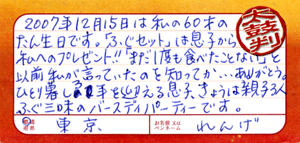 2007年12月15日は私の60才の
たん生日です。「ふぐセット」は息子から
私へのプレゼント!!「まだ1度も食べたことない」と
以前私が言っていたのを知ってか…ありがとう。
ひとり暮し 年を迎える息子、きょうは親子3人
ふぐ三昧のバースディパーティーです。
太鼓判
東京
お名前又は
ペンネーム
れんげ